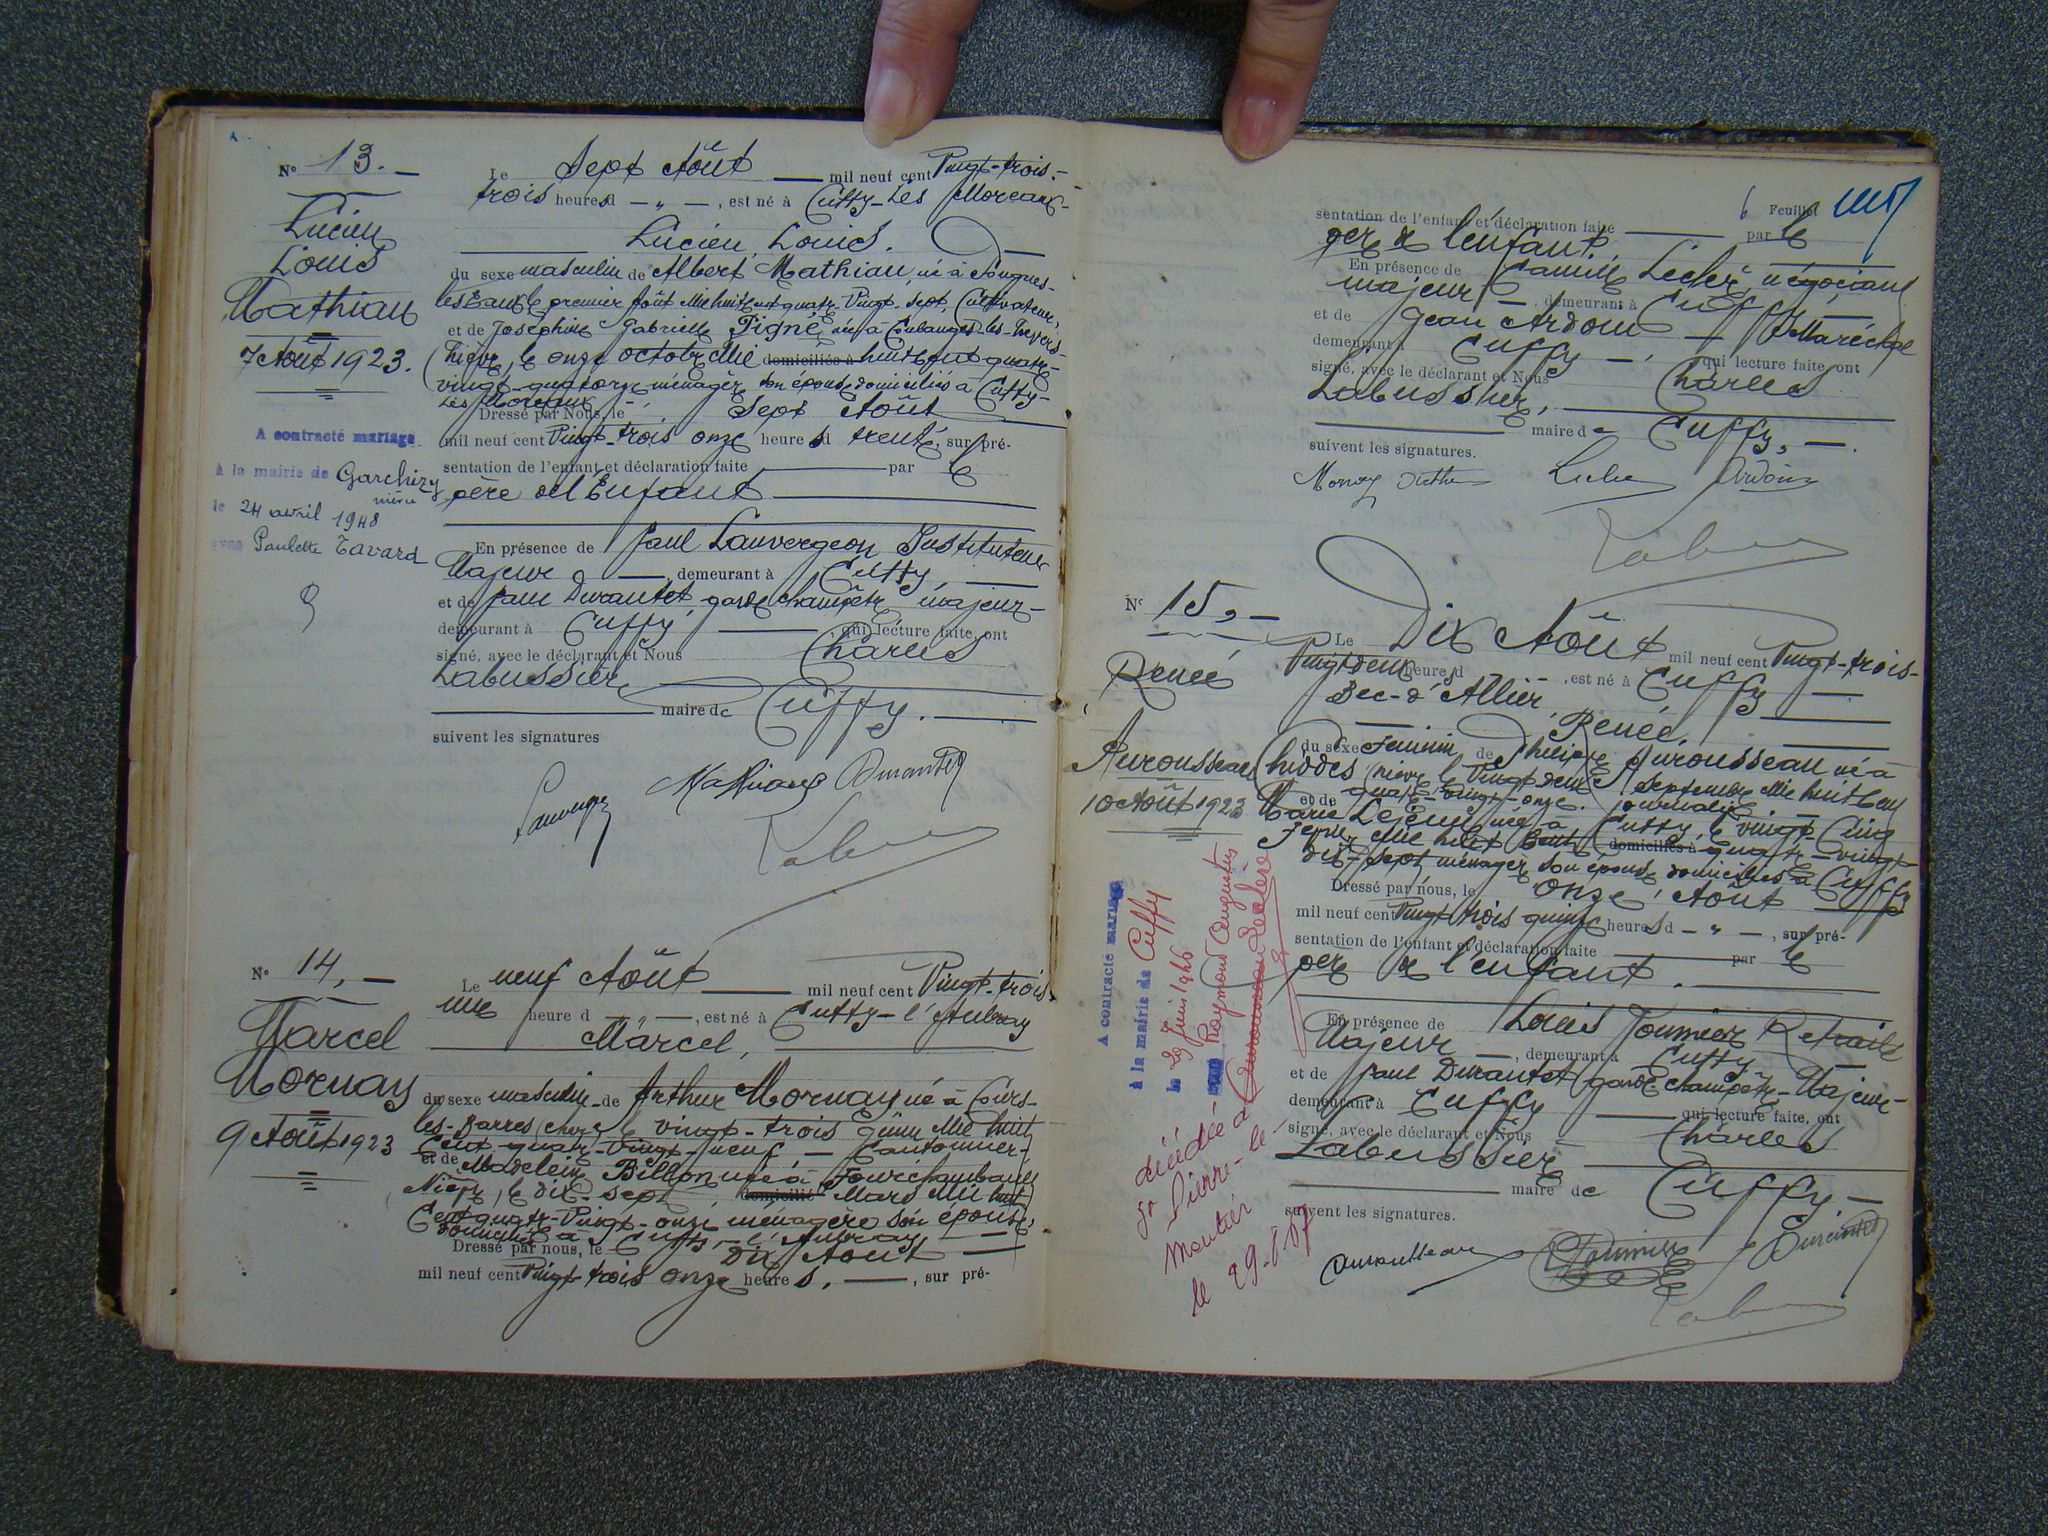 N° 13. —
Lucien
Louis
Mathiau
7 Août 1923.
A contracté mariage
à la mairie de Garchizy
nièvre
le 24 avril 1948
avec Paulette Tavard
Le Sept Août — mil neuf cent Vingt-trois.-
trois heures d — „ —, est né à Cuffy-Les Moreaux-
Lucien, Louis.
du sexe masculin de Albert Mathiau, né à Pougues-
les-Eaux le premier Août Mil huit cent quatre Vingt-sept, Cultivateur,
et de Joséphine Gabrielle Pigné née à Coulanges-les-Nevers-
(Nièvre, le onze octobre Mil domiciliés à huit cent quatre-
vingt-quatorze ménagère son épouse domiciliés à Cuffy-
Les Moreaux -.
Dressé par Nous, le Sept Août
mil neuf cent Vingt-trois onze heures d trente, sur pré-
sentation de l'enfant et déclaration faite — par le
père de l'Enfant —
En présence de Paul Lauvergeon Instituteur
Majeur — demeurant à Cuffy —
et de Paul Durantet, garde champêtre majeur-
demeurant à Cuffy, — qui lecture faite, ont
signé, avec le déclarant et Nous Charles
Labussière
— maire de Cuffy. —
suivent les signatures
Mathiau Durantet
Lauvergeon
N° 14, —
Marcel
Mornay
9 Août 1923
Le neuf Août — mil neuf cent Vingt-trois
une heure d — „ —, est né à Cuffy-l'Aubray
Marcel,
du sexe masculin de Arthur Mornay né à Cours-
les-Barres (Cher) le vingt-trois Juin Mil huit
Cent quatre-Vingt-neuf, — Cantonnier-
et de Madeleine Billon née à Fourchambault
Nièvre, le dix-sept domiciliés Mars Mil huit
Cent quatre-Vingt-onze ménagère son épouse,
domiciliés à Cuffy, - l'Aubray —
Dressé par nous, le Dix Août —
mil neuf cent Vingt-trois onze heures. —, sur pré-
6 Feuillet
sentation de l'enfant et déclaration faite — par le
père de l'enfant.
En présence de Camille Leclerc, négociant
majeur —, demeurant à Cuffy —
et de Jean Ardoin — Maréchal
demeurant à Cuffy —, qui lecture faite ont
signé, avec le déclarant et Nous Charles
Labussière, —
— maire de Cuffy, —.
suivent les signatures.
Mornay Arthur Leclerc Ardoin
N° 15, —
Renée
Aurousseau
10 Août 1923
A contracté mariage
à la mairie de Cuffy
le 29 Juin 1946
avec Raymond Augustin
Aurousseau Leclerc
décédée à
St Pierre-le-
Moutier
Le Dix Août mil neuf cent Vingt-trois-
Vingt deux heures d —, est né à Cuffy —
Bec-d'Allier —
Renée,
du sexe Féminin de Philippe Aurousseau né à
(nièvre le Vingt deux septembre Mil huit Cent
quatre-vingt-onze. journalier
et de Marie Lejeune née à Cuffy, le vingt-Cinq
Février Mil huit Cent domiciliés à quatre-vingt
dix-sept ménagère son épouse domiciliés à Cuffy
Dressé par nous, le onze Août —
mil neuf cent Vingt trois quinze heures d — „ —, sur pré-
sentation de l'enfant et déclaration faite — par le
père de l'enfant.
En présence de Louis Tournier Retraité
Majeur —, demeurant à Cuffy
et de Paul Durantet garde champêtre Majeur-
demeurant à Cuffy — qui lecture faite, ont
signé, avec le déclarant et Nous Charles
Labussière —
— maire de Cuffy. —
suivent les signatures.
Aurousseau Tournier Durantet